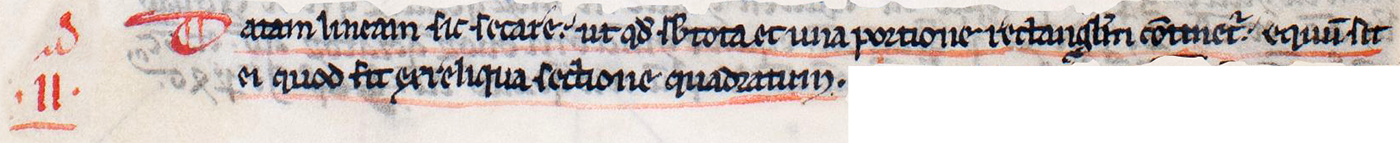 .II.
Datam lineam sic secare. ut qđ sb tota et una portione rectanglm ↄ̄tinet᷑. equū sit
ei quod fit ex reliqua sectione quadratum.